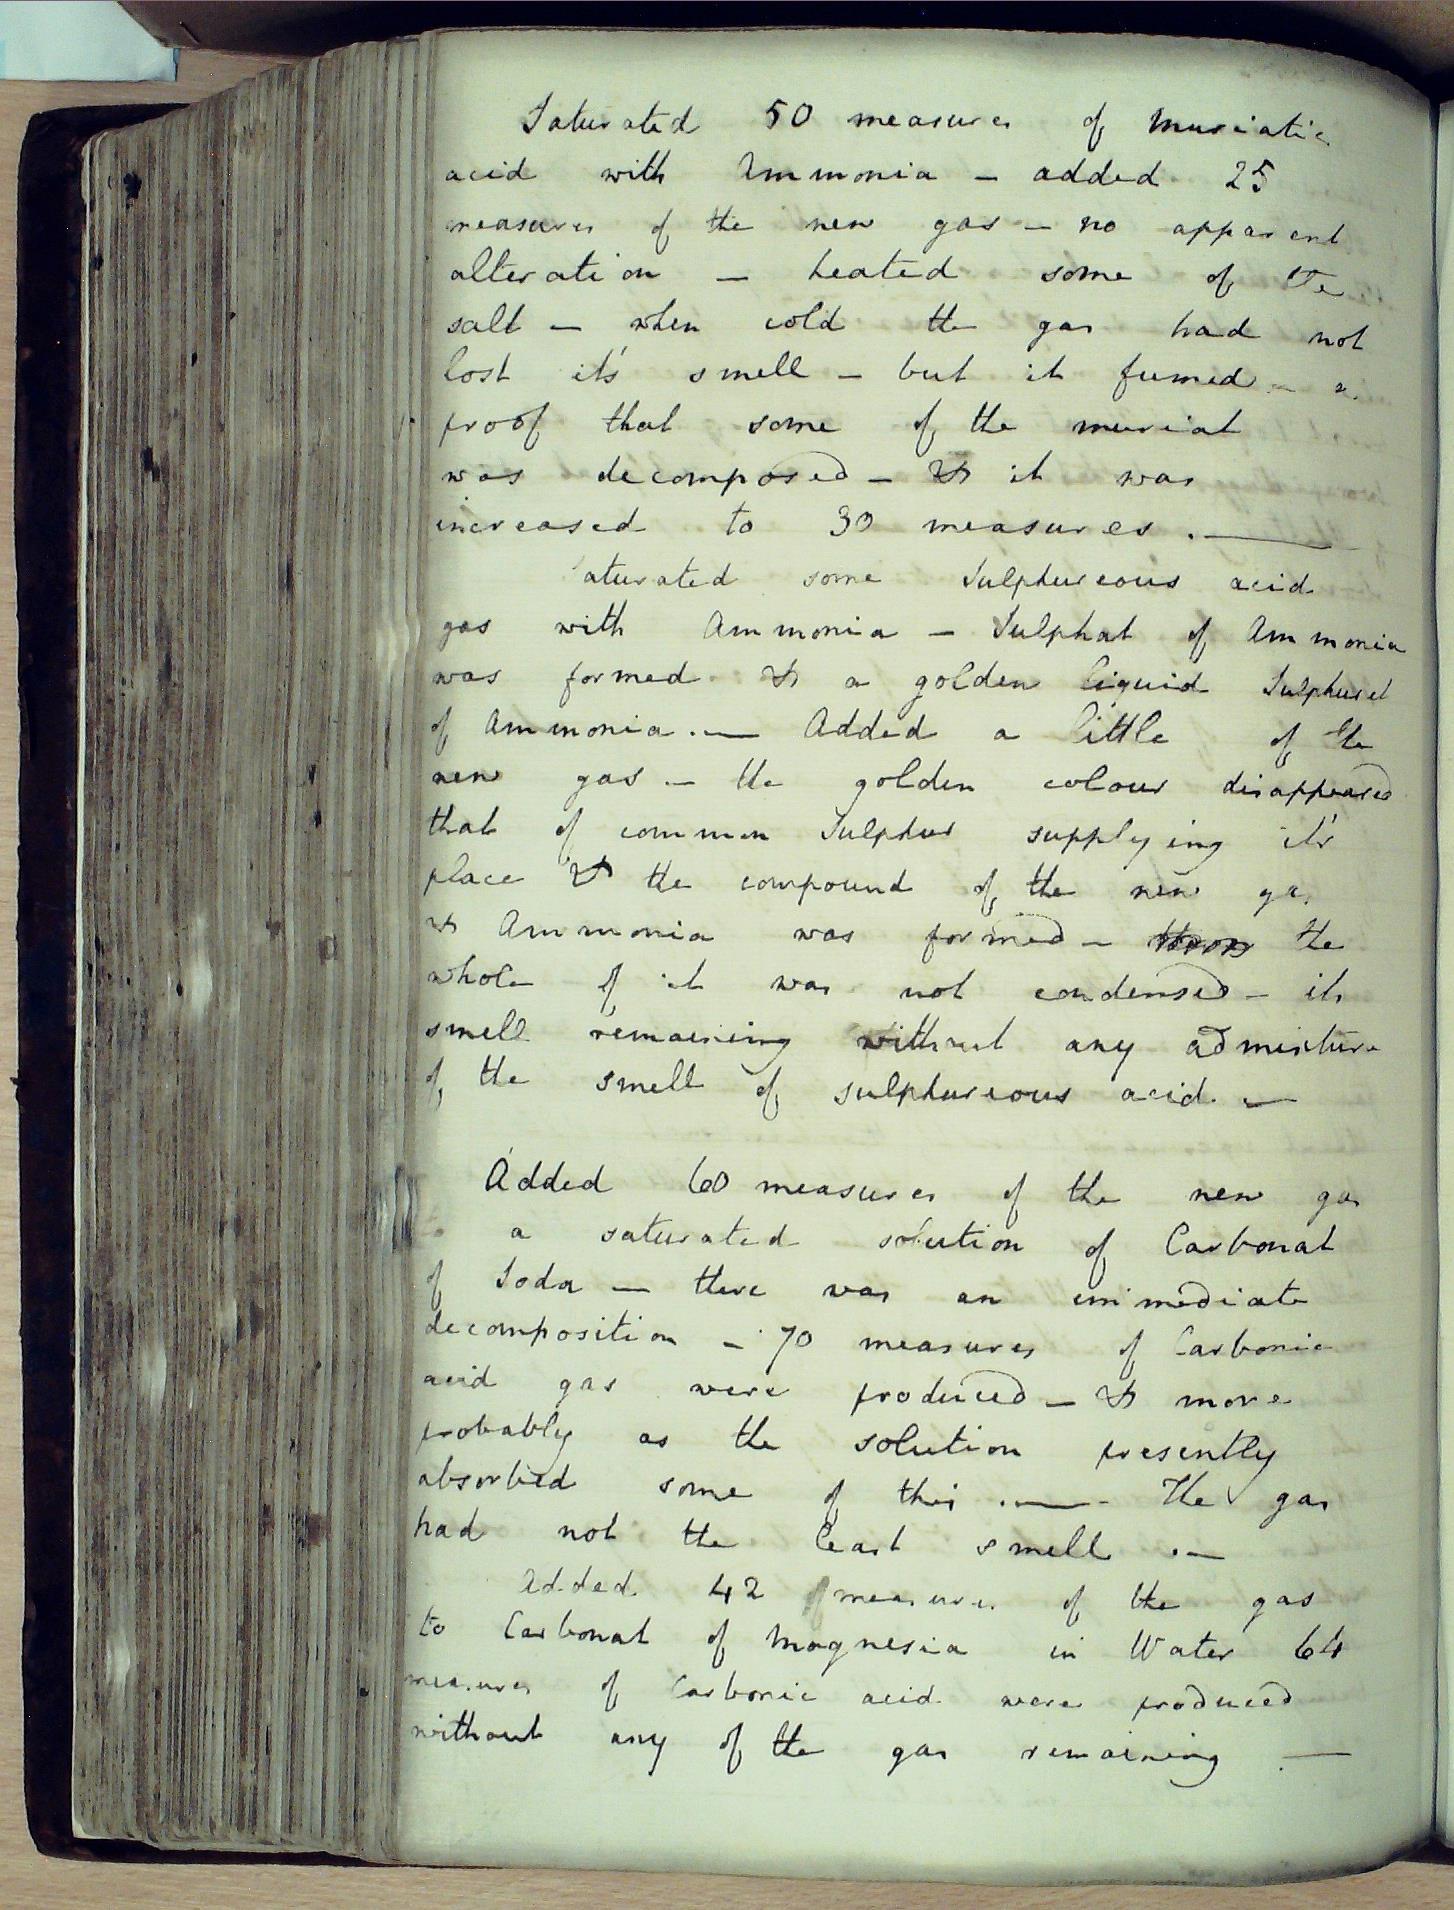 Saturated 50 measures of Muriatic
acid with Ammonia – added 25
measures of the new gas – no apparent
alteration – heated some of the
salt – when cold the gas had not
lost it's smell – but it fumed – a
proof that some of the muriat
was decomposed – & it was
increased to 30 measures. —
Saturated some Sulphureous acid
gas with Ammonia – Sulphat of Ammonia
was formed & a golden liquid Sulphuret
of Ammonia. — Added a little of the
new gas – the golden colour disappeared
that of common Sulphur supplying it's
place & the compound of the new gas
& Ammonia was formed – the
whole of it was not condensed – its
smell remaining without any admixture
of the smell of sulphureous acid. —
Added 60 measures of the new gas
to a saturated solution of Carbonat
of Soda – there was an immediate
decomposition – 70 measures of Carbonic
acid gas were produced – & more
probably as the solution presently
absorbed some of this. — The gas
had not the least smell. —
Added 42 measures of the gas
to Carbonat of Magnesia in Water 64
measures of Carbonic acid were produced
without any of the gas remaining —